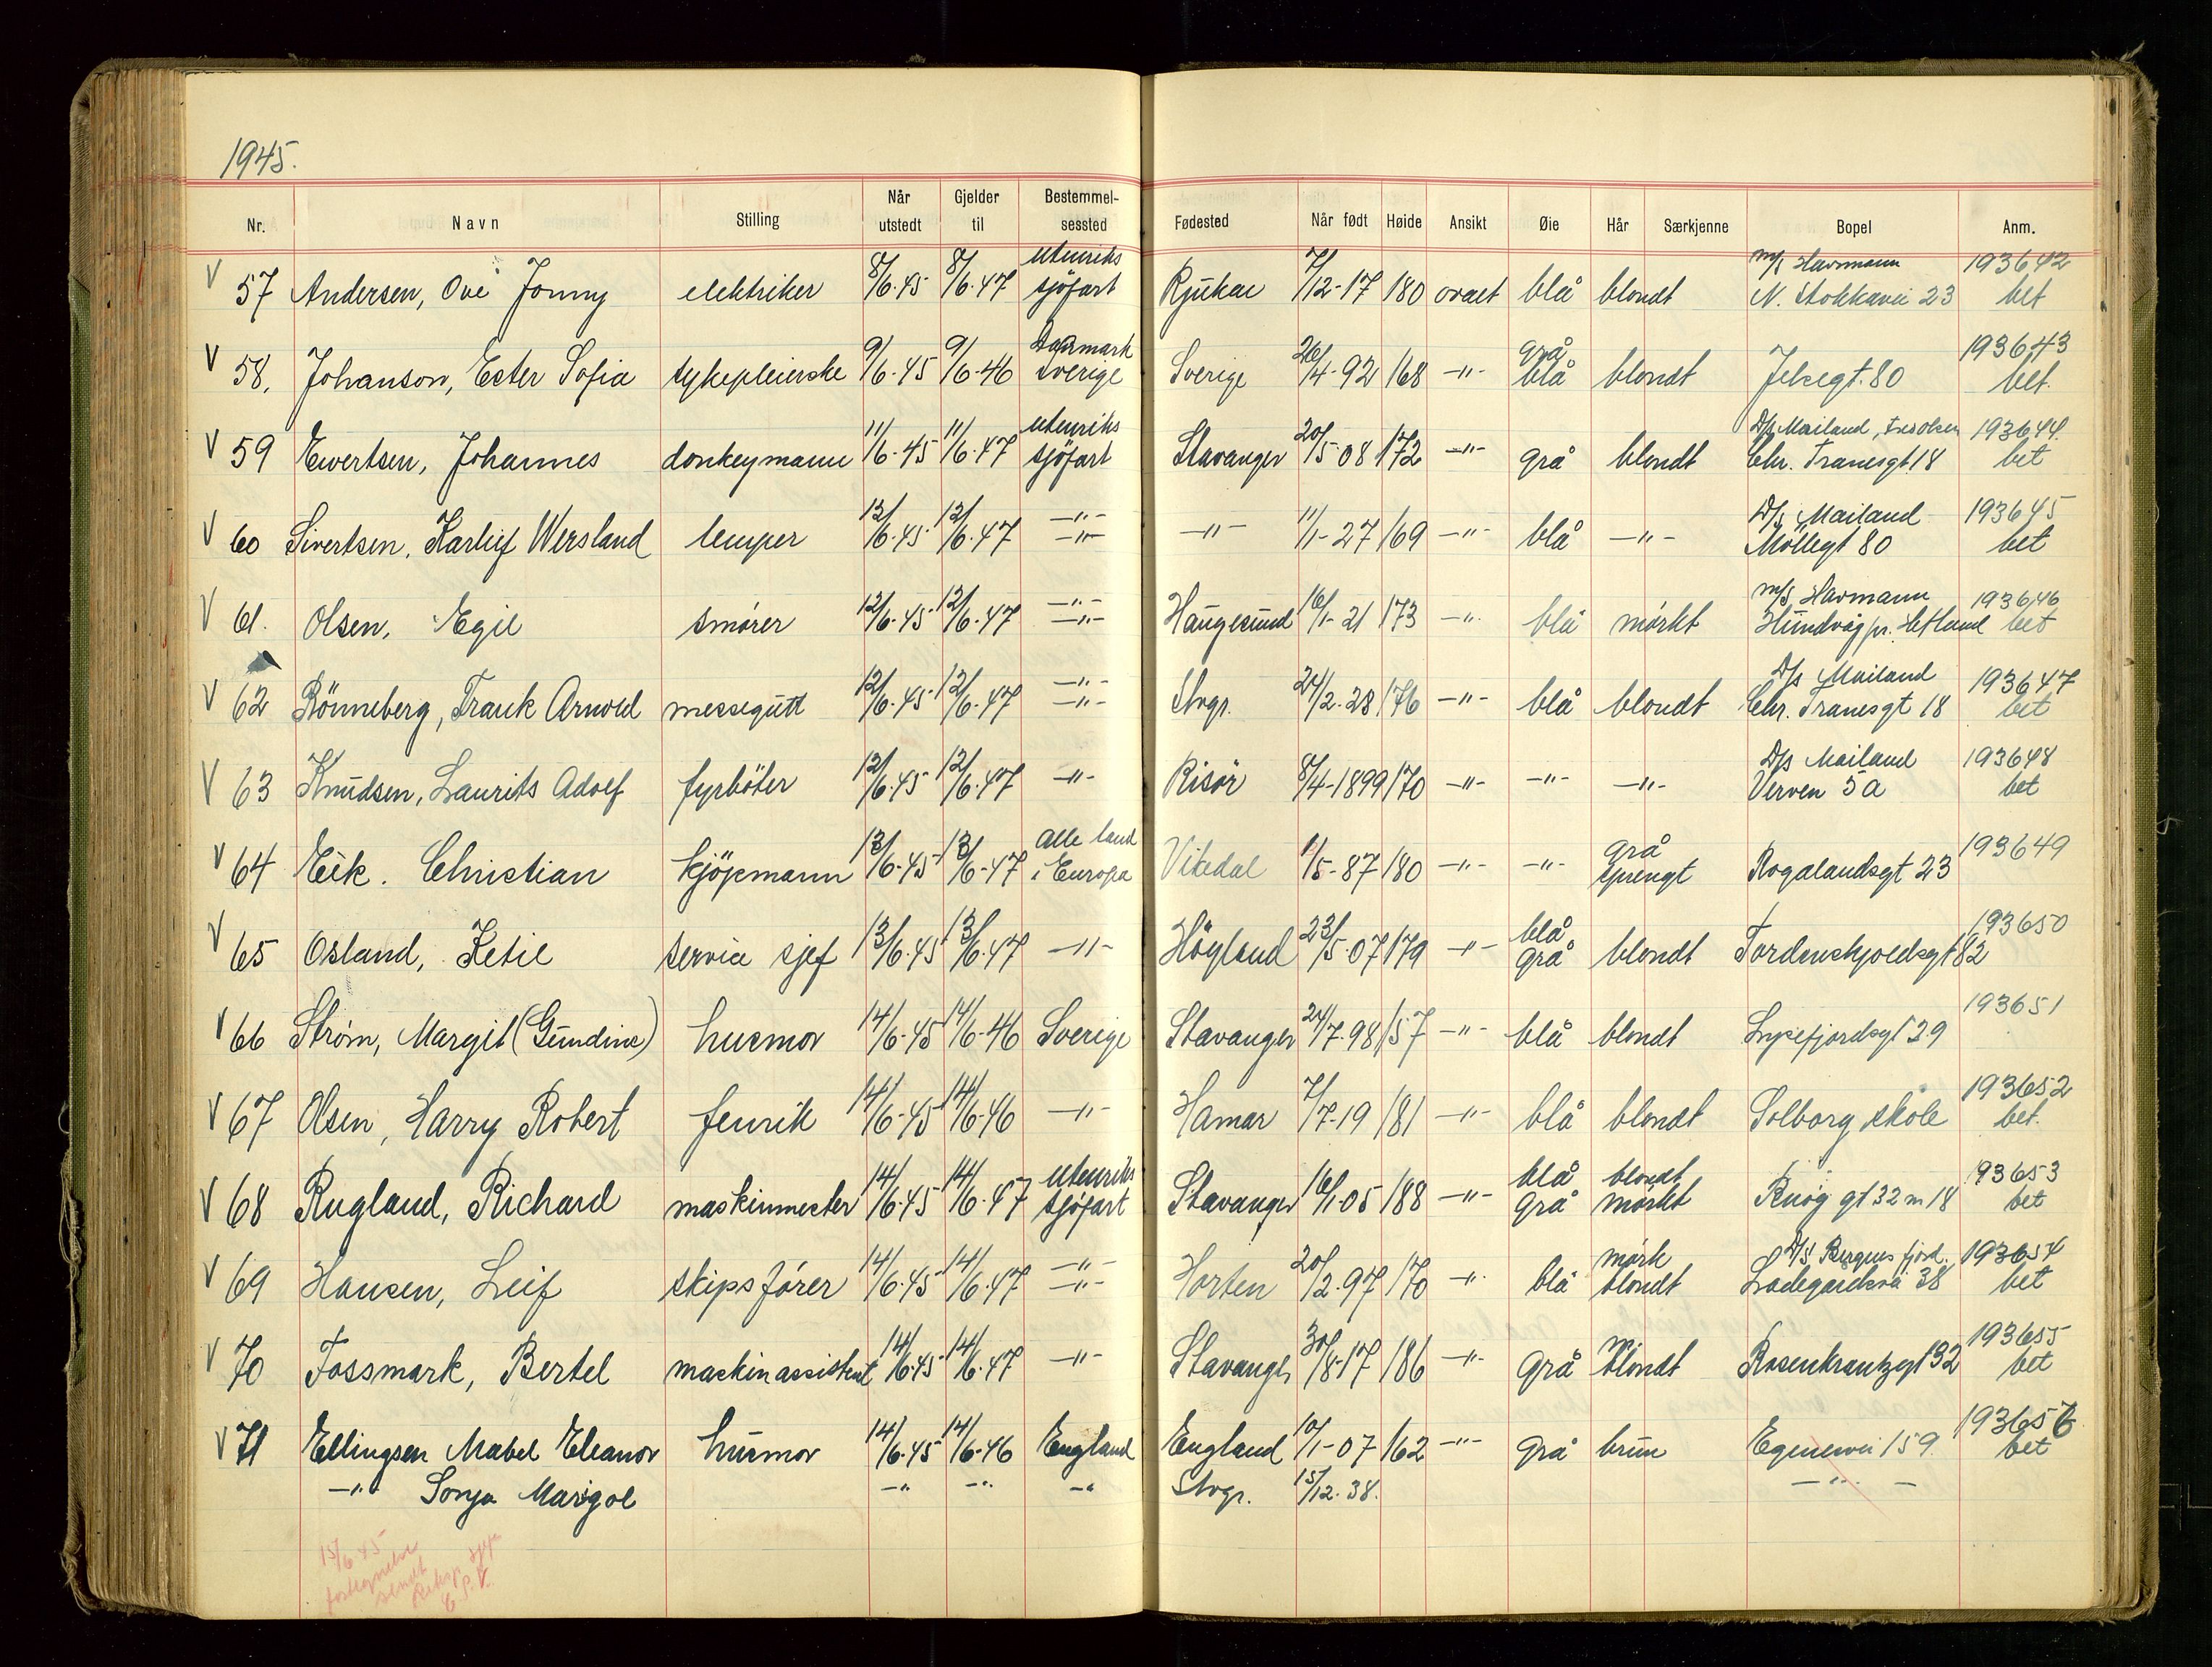 1945.
Nr. Navn Stilling Når utstedt Gjelder til Bestemmelsessted Fødested Når født Høide Ansikt Øie Hår Særkjenne Bopel Anm.
utenriks m/s Havmann 193642
V 57 Andersen, Ove Jonny elektriker 8/6.45 8/6.47 sjöfart Rjukan 7/12-17 180 ovalt blå blondt N. Stokkavei 23 bet
Danmark grå 193643
V 58. Johanson, Ester Sofia sykepleierske 9/6.45 9/6-46 Sverige Sverige 26/4-92 168 -"- blå blondt Jelsegt. 80 bet.
utenriks D/s Mailand, Fred Olsen 193644.
V 59 Ewertsen, Johannes donkeymann 11/6-45 11/6.47 sjöfart Stavanger 20/5-08 172 -"- grå blondt Chr. Tranesgt 18 bet
-"- D/s Mailand 193645
V 60 Sivertsen, Karleif Wersland lemper 12/6.45 12/6.47 -"- -"- 11/1-27 169 -"- blå -"- Möllegt 80 bet
-"- m/s Havmann 193646
V 61. Olsen, Egil smører 12/6.45 12/6.47 -"- Haugesund 16/1-21 173 -"- blå mørkt Hundvåg pr. Hetland bet
-"- D/s Mailand 193647
V 62 Rönneberg, Frank Arnold messegutt 12/6.45 12/6.47 -"- Stvgr. 24/2-28 176 -"- blå blondt Chr. Tranesgt 18 bet
D/s Mailand 193648
V 63 Knudsen, Laurits Adolf fyrböter 12/6.45 12/6.47 -"- Risör 8/4-1899 170 -"- -"- -"- Verven 5a bet
Alle land grå 193649
V 64 Eik. Christian kjöpmann 13/6-45 13/6-47 i Europa Vikedal 1/5-87 180 -"- -"- sprengt Rogalandsgt 23
blå 193650
V 65 Osland, Ketil service sjef 13/6.45 13/6.47 -"- Högland 23/5-07 179 -"- grå blondt Tordenskjoldsgt 82
193651
V 66 Strøm, Margit (Gundine) husmor 14/6-45 14/6-46 Sverige Stavanger 24/7.98 157 -"- blå blondt Lysefjordsgt 39
193652
V 67 Olsen, Harry Robert fenrik 14/6-45 14/6-46 -"- Hamar 7/7-19 181 -"- blå blondt Solborg skole bet.
utenriks blå blondt 193653
V 68 Rugland, Richard maskinmester 14/6.45 14/6.47 sjöfart Stavanger 16/1-05 188 -"- grå mørkt gt 32 18 bet
-"- mørk D/s Bergensfjord. 193654
V 69 Hansen, Leif skipsfører 14/6.45 14/6.47 -"- Horten 20/2.97 170 -"- blå blondt 38 bet
m. 193655
V 70 Fossmark, Bertel maskinassistent 14/6.45 14/6.47 -"- Stavanger 30/8-17 186 -"- grå blondt Rosenkrantzgt 32 bet
193656
V 71 Ellingsen Mabel Eleanor husmor 14/6.45 14/6-46 England England 10/1-07 162 -"- grå brun Egenesvei 159. bet
-"- Sonja Marigol -"- -"- -"- Stvgr. 15/12.38. -"-
15/6 45
fortegnelse
sendt